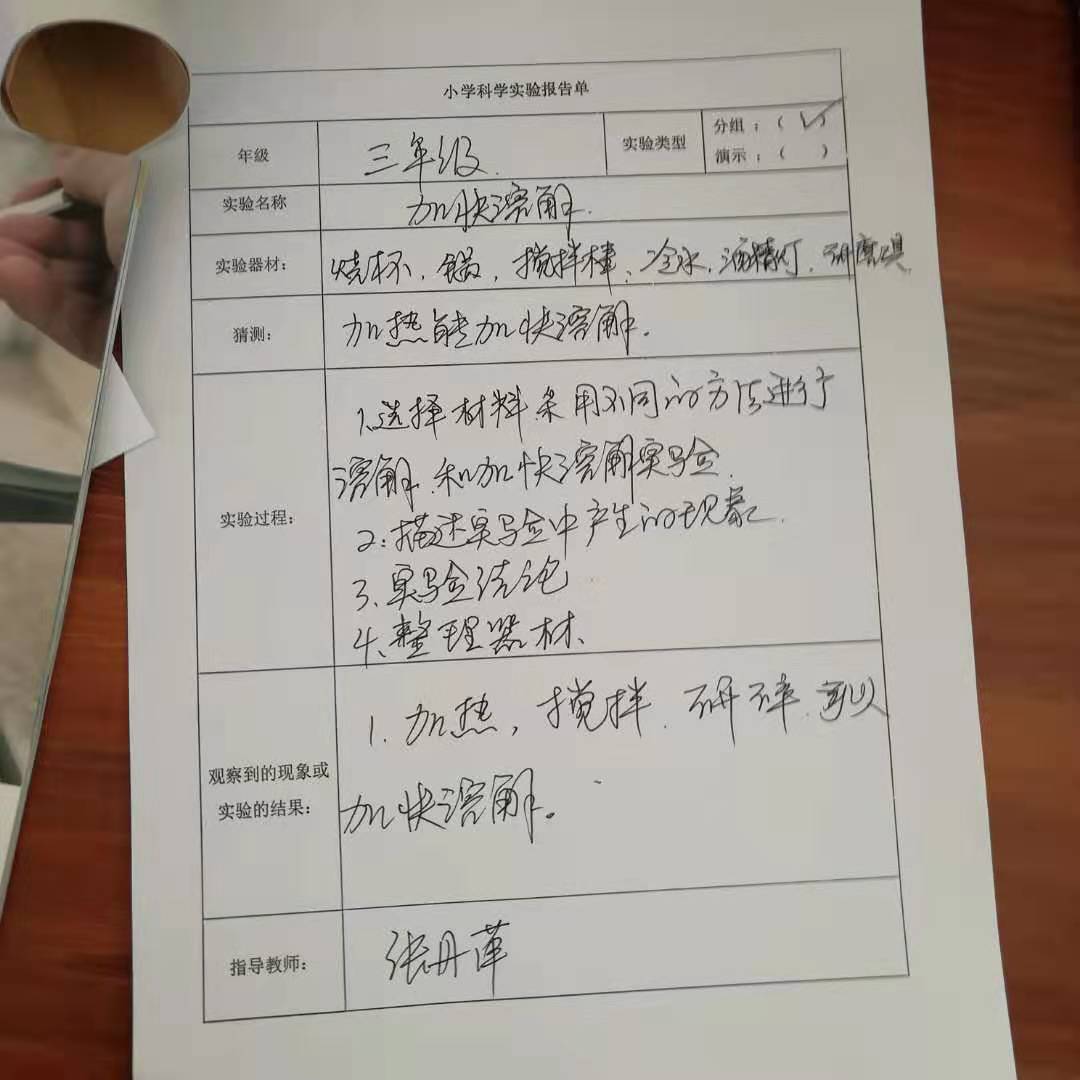 小学科学实验报告单
年级 三年级. 实验类型 分组：（✓）
演示：（ ）
实验名称 加快溶解.
实验器材： 烧杯、锅、搅拌棒、冷水、酒精灯、研磨具
猜测： 加热能加快溶解.
实验过程： 1.选择材料采用不同的方法进行
溶解.和加快溶解实验.
2.描述实验中产生的现象.
3、实验结论
4、整理器材、
观察到的现象或
实验的结果： 1.加热，搅拌.研碎.可以
加快溶解。
指导教师： 张丹